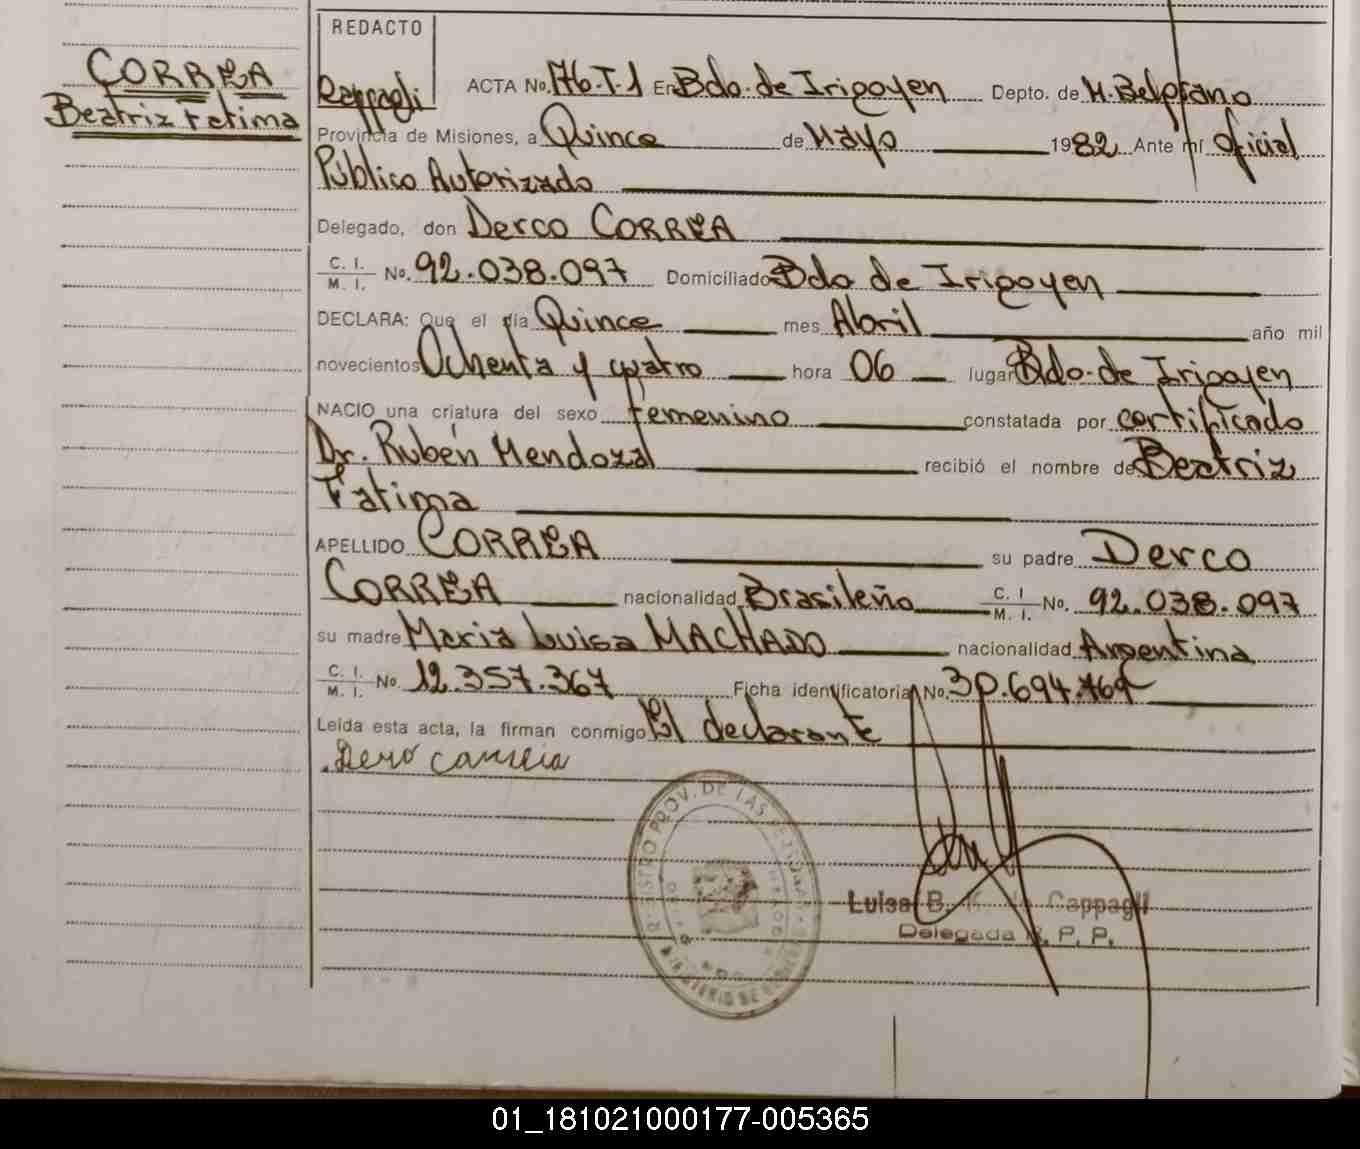 REDACTO
CORREA
Beatriz Fatima
Cappagli ACTA No. 176-T-1 En Bdo. de Irigoyen Depto. de M. Belgrano
Provincia de Misiones, a Quince de Mayo 1982 Ante mí Oficial
Público Autorizado
Delegado, don Derco CORREA
C. I. / M. I. No. 92.038.097 Domiciliado Bdo de Irigoyen
DECLARA: Que el día Quince mes Abril año mil
novecientos Ochenta y cuatro hora 06 lugar Bdo. de Irigoyen
NACIO una criatura del sexo femenino constatada por certificado
Dr. Rubén Mendozal recibió el nombre de Beatriz
Fatima
APELLIDO CORREA su padre Derco
CORREA nacionalidad Brasileño C. I / M. I. No. 92.038.097
su madre Maria Luisa MACHADO nacionalidad Argentina
C. I. / M. I. No 12.357.367 Ficha identificatoria No. 30.694.769
Leída esta acta, la firman conmigo El declarante
REGISTRO PROV. DE LAS PERSONAS
Luisa B. Cappagli
Delegada R. P. P.
01_181021000177-005365